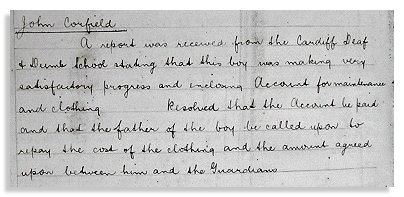 John Corfield
A report was received from the Cardiff Deaf
& Dumb School stating that this boy was making very
satisfactory progress and enclosing Account for maintenance
and clothing Resolved that the Account be paid
and that the father of the boy be called upon to
repay the cost of the clothing and the amount agreed
upon between him and the Guardians